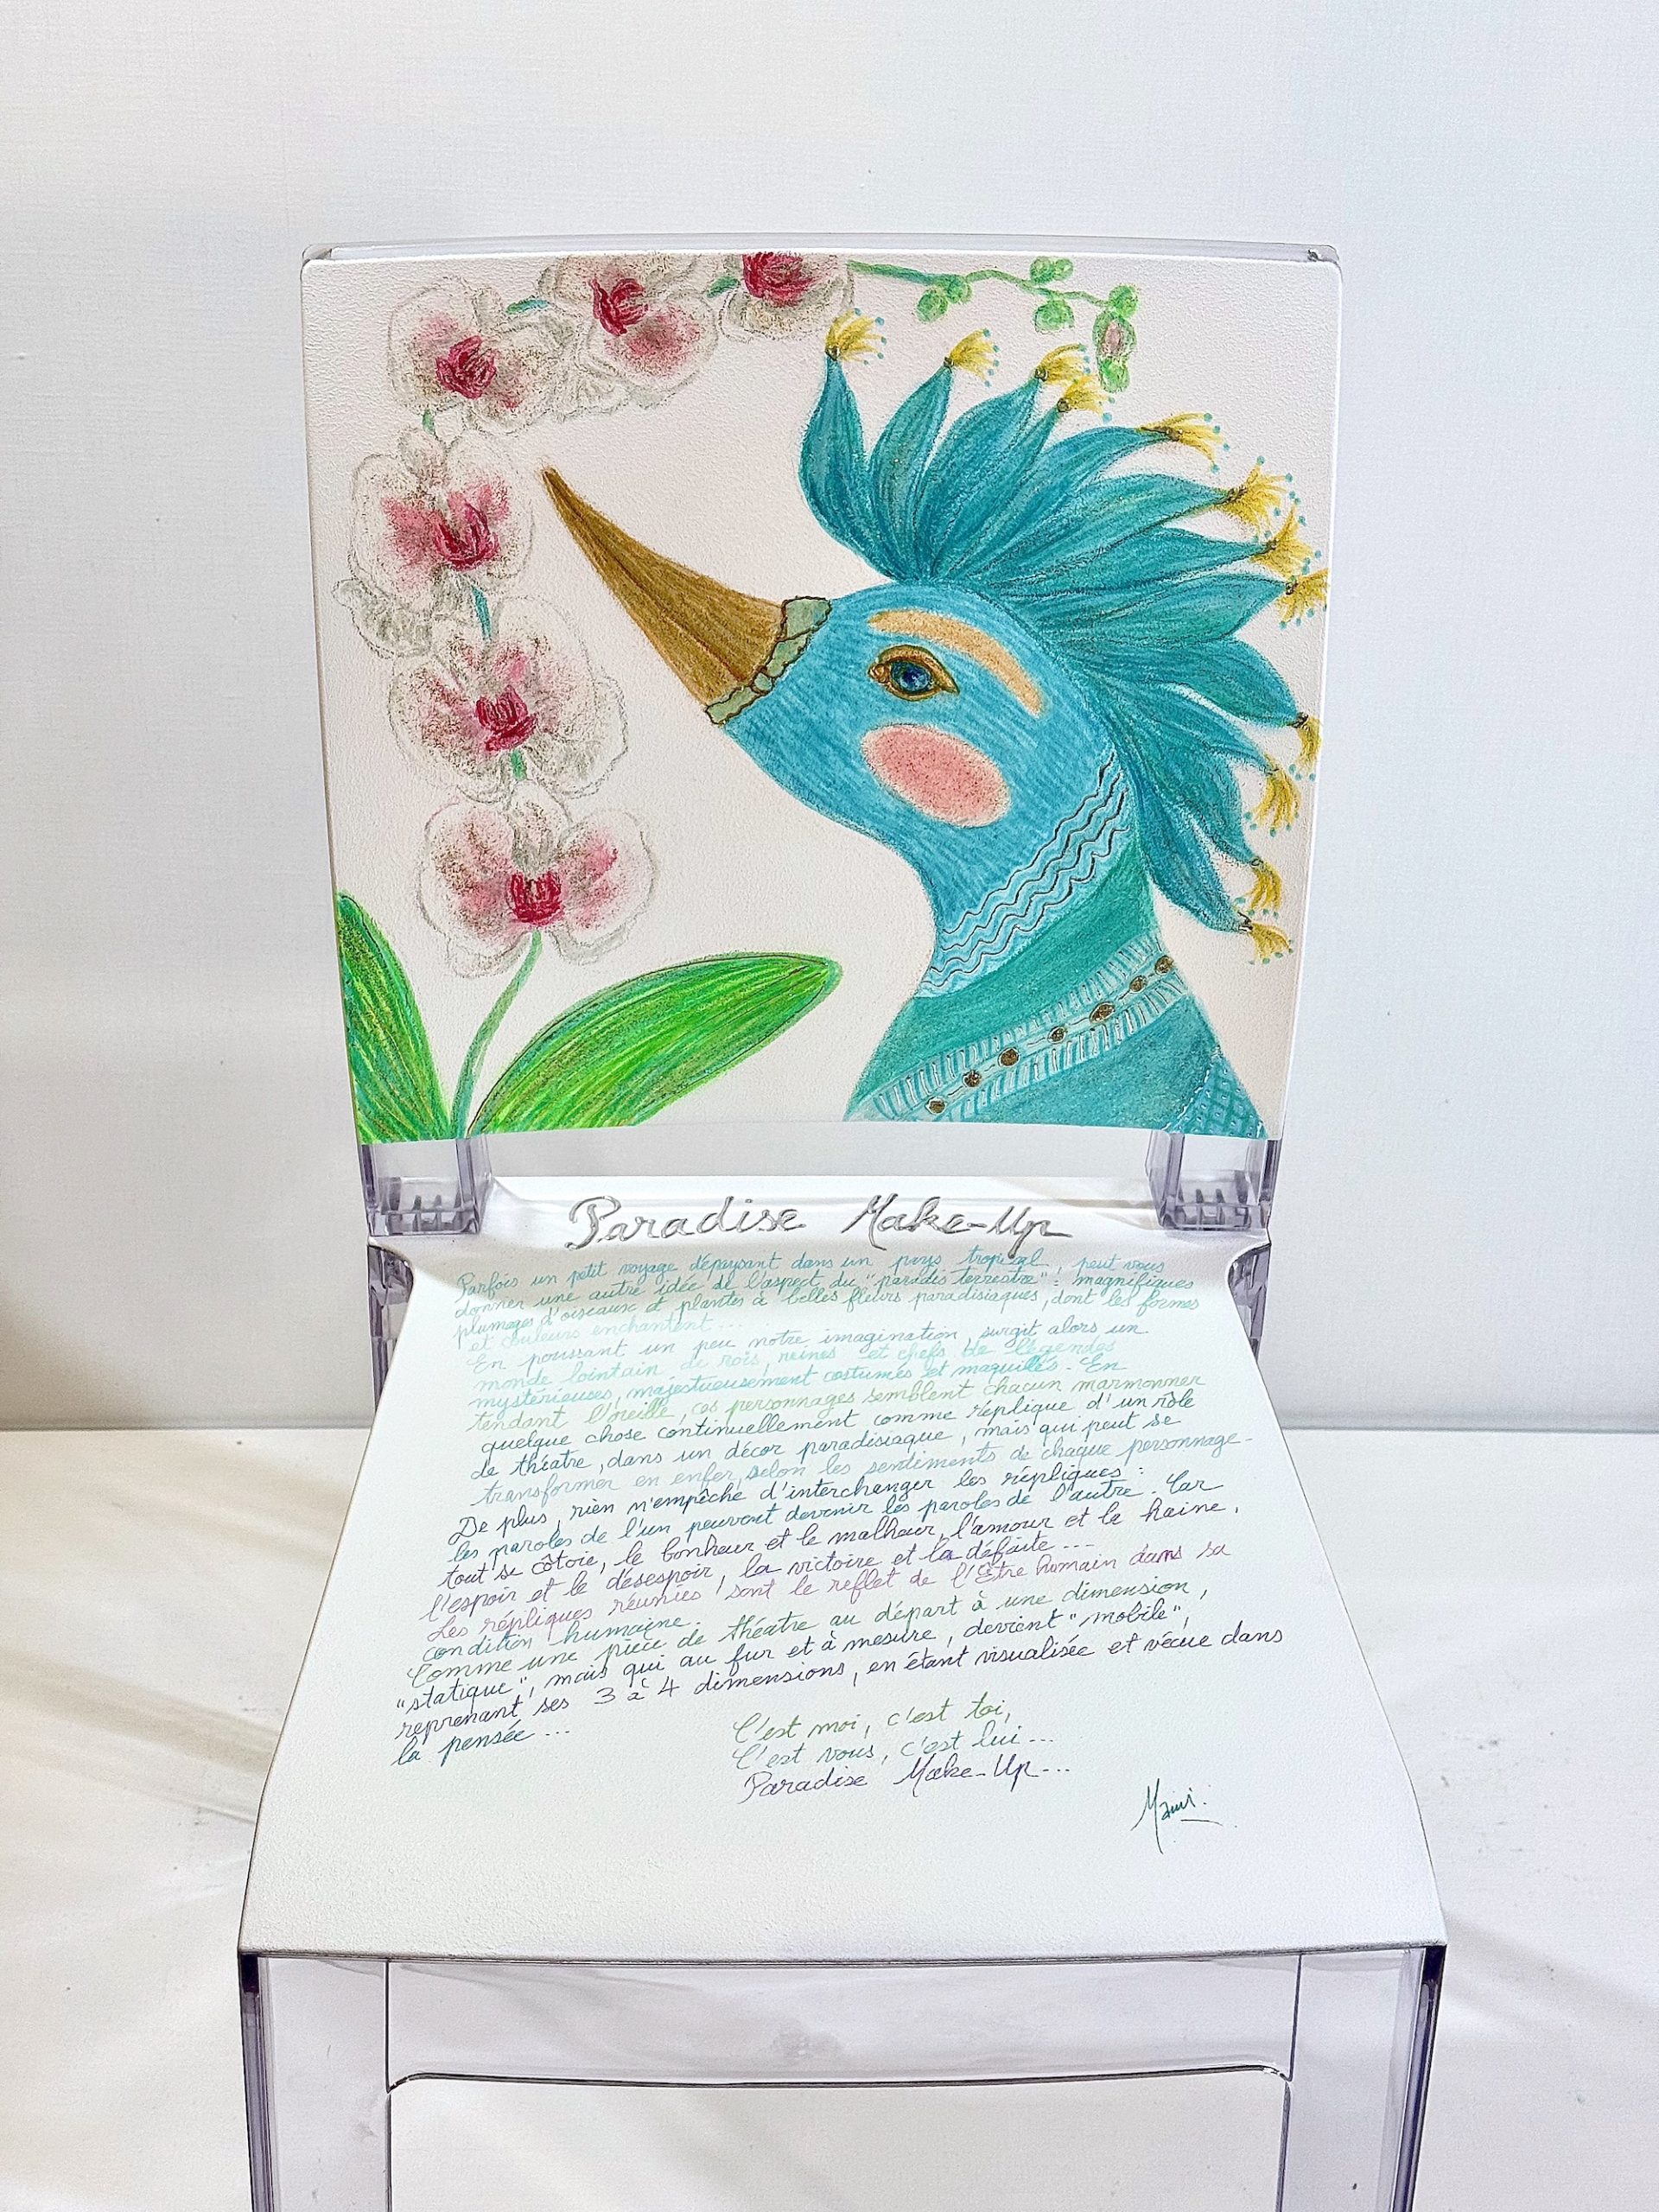 Paradise Make-Up
Parfois un petit voyage dépaysant dans un pays tropical, peut vous
donner une autre idée de l'aspect du "paradis terrestre" : magnifiques
plumages d'oiseaux et plantes à belles fleurs paradisiaques, dont les formes
et couleurs enchantent...
En poussant un peu notre imagination, surgit alors un
monde lointain de rois, reines et chefs de légendes
mystérieuses, majestueusement costumés et maquillés. En
tendant l'oreille, ces personnages semblent chacun marmonner
quelque chose continuellement comme réplique d'un rôle
de théâtre, dans un décor paradisiaque, mais qui peut se
transformer en enfer, selon les sentiments de chaque personnage.
De plus, rien n'empêche d'interchanger les répliques :
les paroles de l'un peuvent devenir les paroles de l'autre. Car
tout se côtoie, le bonheur et le malheur, l'amour et la haine,
l'espoir et le désespoir, la victoire et la défaite...
Les répliques réunies sont le reflet de l'Être humain dans sa
condition humaine.
Comme une pièce de théâtre au départ à une dimension,
"statique", mais qui au fur et à mesure, devient "mobile",
reprenant ses 3 à 4 dimensions, en étant visualisée et vécue dans
la pensée...
C'est moi, c'est toi,
C'est vous, c'est lui...
Paradise Make-Up...